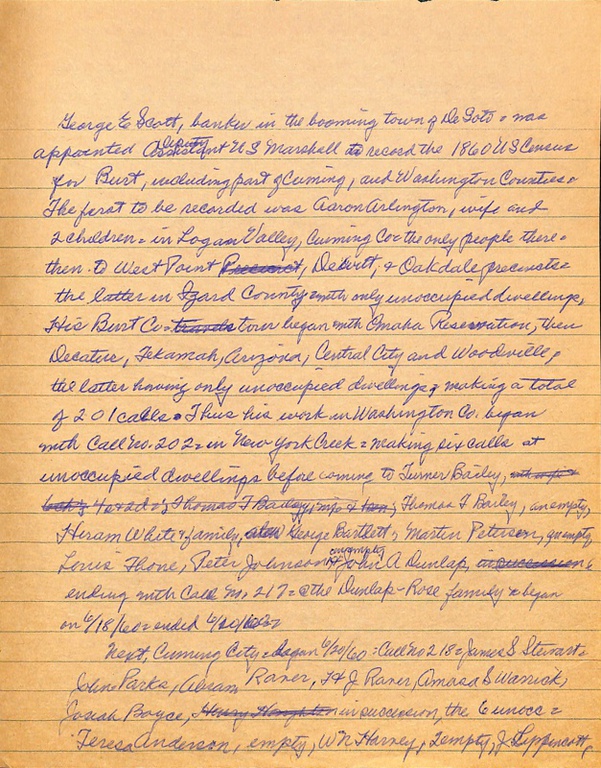 George E Scott, banker in the booming town of De Soto = was
appointed Assistant deputy US Marshall to record the 1860 US Census
for Burt, including part of Cuming, and Washington Counties.
The first to be recorded was Aaron Arlington, wife and
2 children = in Logan Valley, Cuming Co = the only people there =
then to West Point Precinct, DeWitt, & Oakdale precincts =
the latter in Izard County = with only unoccupied dwellings,
His Burt Co = travels tour began with Omaha Reservation, then
Decatur, Tekamah, Arizona, Central City and Woodville,
the latter having only unoccupied dwellings, making a total
of 201 calls. Thus his work in Washington Co. began
with Call No. 202 = in New York Creek = making six calls at
unoccupied dwellings before coming to Turner Bailey,
Thomas F Bailey, Thomas F Bailey, an empty,
Hiram White & family, George Bartlett, Martin Peterson, an empty,
Louis Thone, Peter Johnson, an empty John A Dunlap, in succession
ending with Call No. 217 = @ the Dunlap-Rose family = began
on 6/18/60 = ended 6/20/60
Next, Cuming City = began 6/20/60 = Call No 218 = James S Stewart =
John Parks, Abram Raner, J Raner, Amasa S Warrick,
Josiah Boyce, Henry Houghton in succession, the 6 unocc =
Teresa Anderson, empty, W N Harvey, 2 empty, J Lippincott,